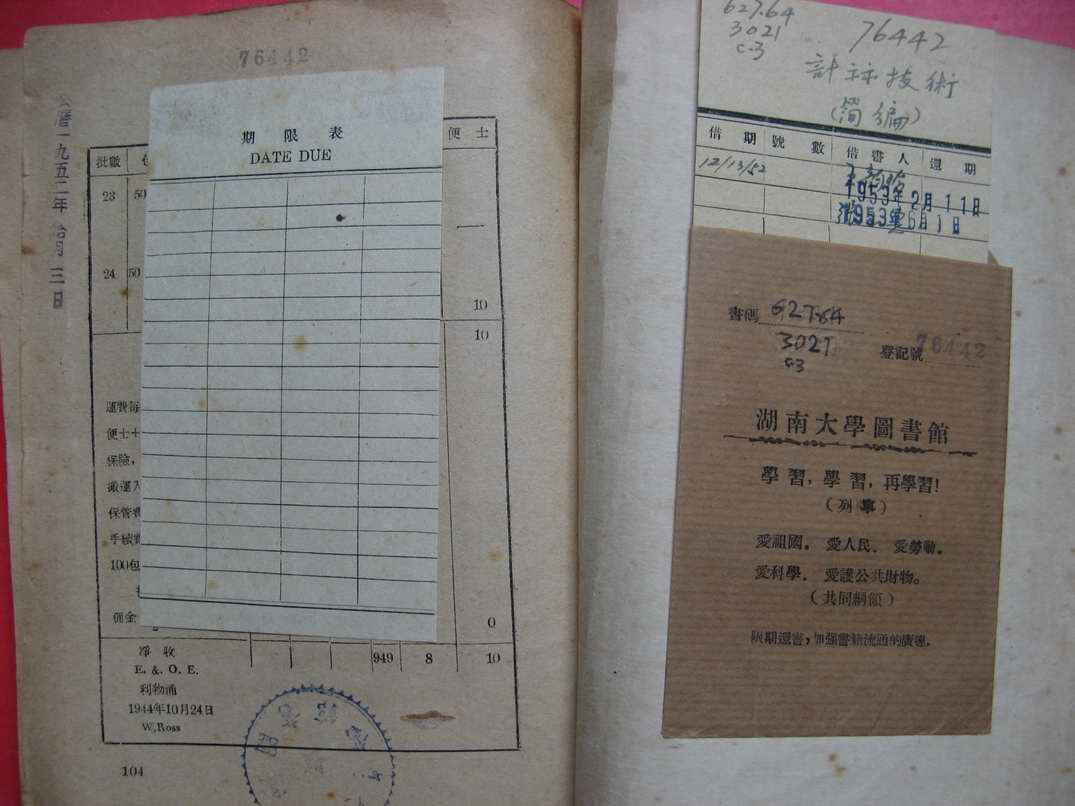 76442
公曆一九五二年拾月三日
期限表
DATE DUE
批數
便士
23 50
24 50
10
10
運費每
便士十
保險,
搬運入
保管費
手續費
100包
佣金
0
淨收
949 8 10
E. &. O. E.
利物浦
1944年10月24日
W, Ross
104
627.64
3021
c.3
76442
計算技術
(簡編)
借期 號數 借書人 還期
12/13/52
1953年2月11日
1953年6月1日
書碼 627.64
3021
c.3
登記號 76442
湖南大學圖書館
學習,學習,再學習!
(列寧)
愛祖國。愛人民、愛勞動。
愛科學、愛護公共財物。
(共同綱領)
限期還書,加強書籍流通的廣徧。